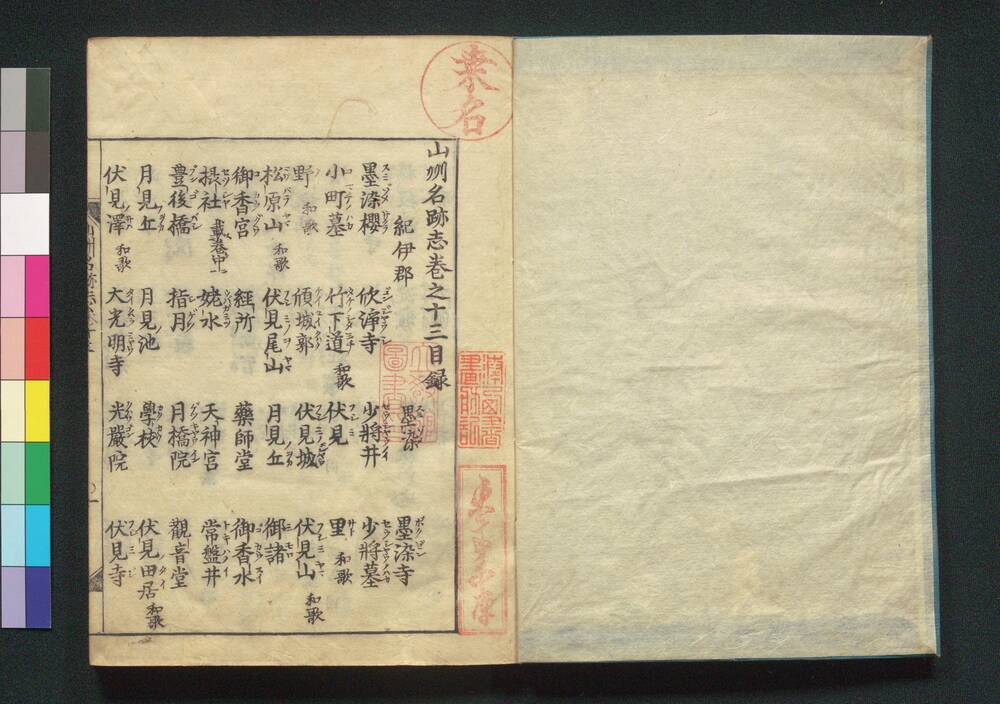 山州名跡志巻之十三目録
紀伊郡 墨染 墨染寺
墨染櫻 欣淨寺 少將井 少將墓
小町墓 竹下道 和歌 伏見 里 和歌
野 和歌 傾城郭 伏見城 伏見山 和歌
松原山 和歌 伏見尾山 月見丘 御諸
御香宮 經所 藥師堂 御香水
摂社 載巻中 姥水 天神宮 常盤井
豊後橋 指月 月橋院 觀音堂
月見丘 月見池 學校 伏見田居 和歌
伏見澤 和歌 大光明寺 光嚴院 伏見寺
桒名